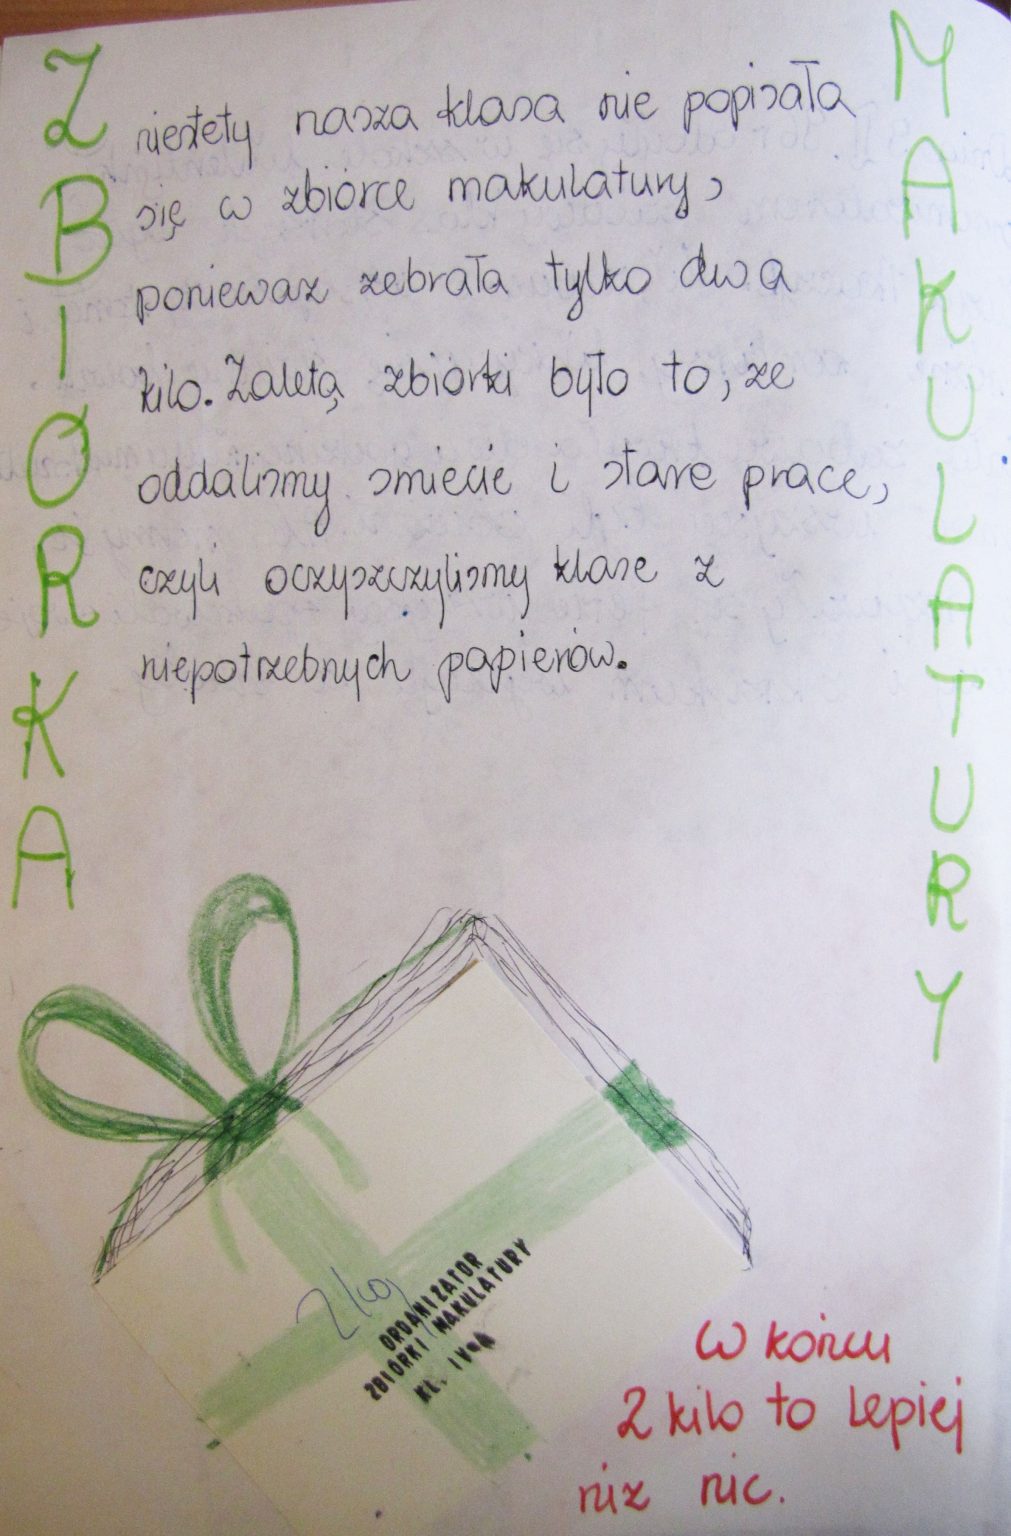 ZBIÓRKA
MAKULATURY
niestety nasza klasa nie popisała
się w zbiórce makulatury,
ponieważ zebrała tylko dwa
kilo. Zaletą zbiórki było to, że
oddaliśmy śmiecie i stare prace,
czyli oczyszczyliśmy klase z
niepotrzebnych papierów.
2 kg
ORGANIZATOR
ZBIÓRKI MAKULATURY
KL. IV
W końcu
2 kilo to lepiej
niż nic.